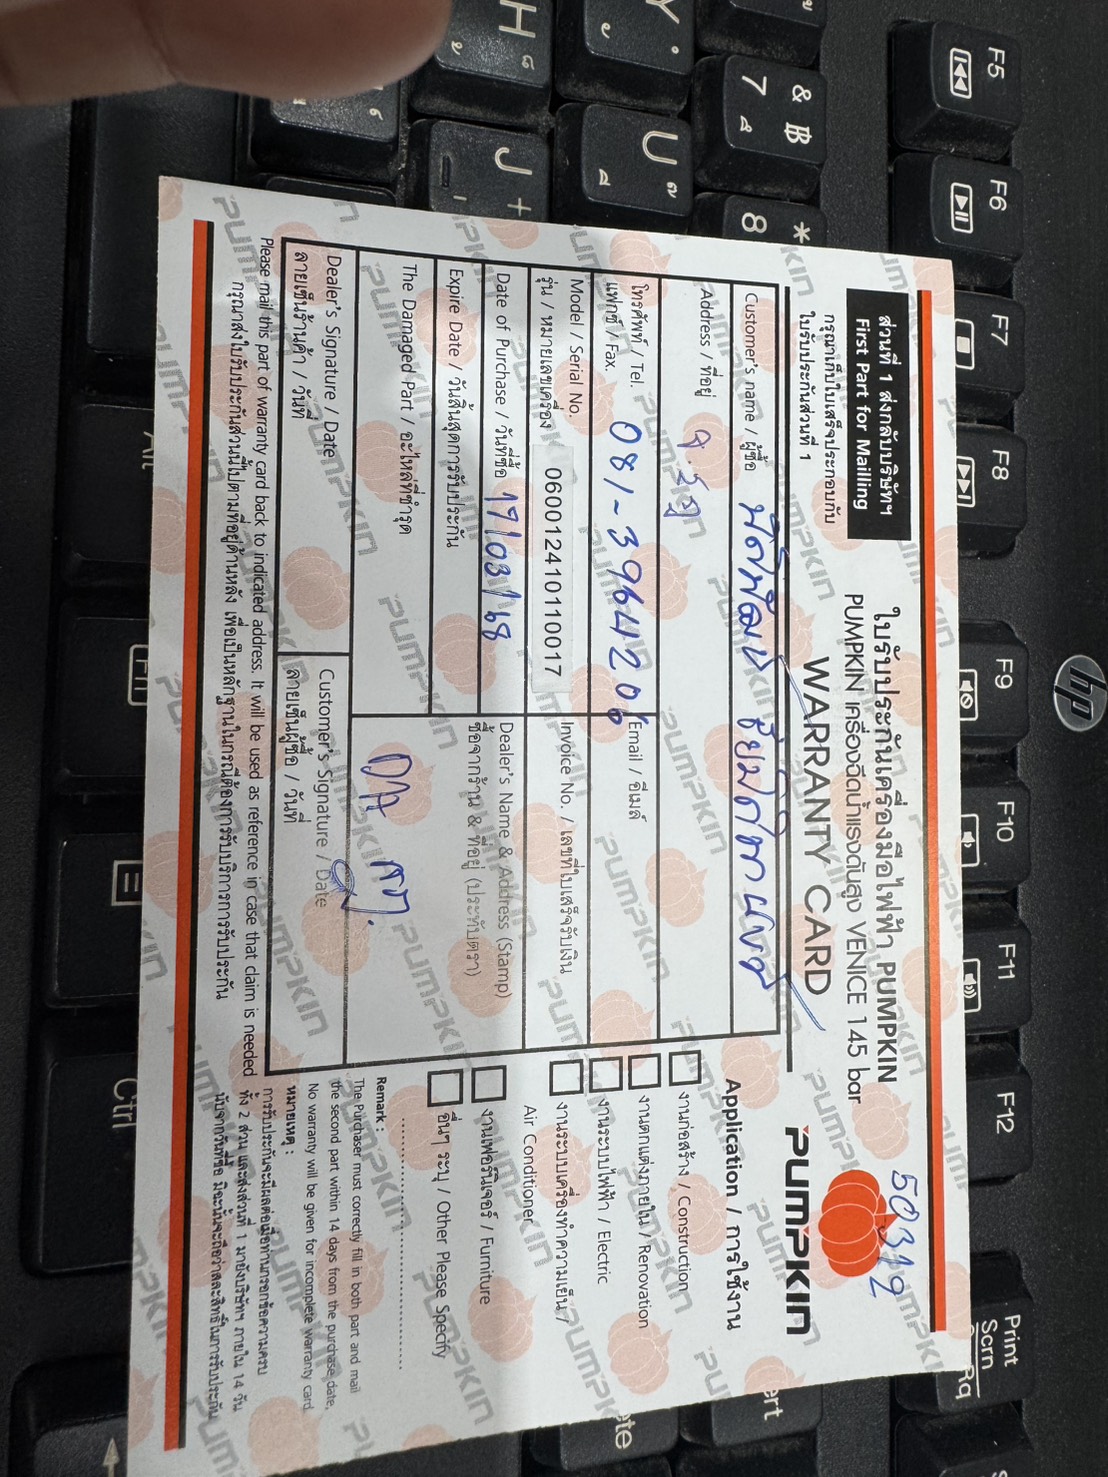 ส่วนที่ 1 ส่งกลับบริษัทฯ
First Part for Mailling
กรุณาเก็บใบเสร็จประกอบกับ
ใบรับประกันส่วนที่ 1
ใบรับประกันเครื่องมือไฟฟ้า PUMPKIN
PUMPKIN เครื่องฉีดน้ำแรงดันสูง VENICE 145 bar
WARRANTY CARD
50312
PUMPKIN
Customer's name / ผู้ซื้อ
Address / ที่อยู่
โทรศัพท์ / Tel. 081-3964206
แฟกซ์ / Fax.
Email / อีเมล์
Model / Serial No.
รุ่น / หมายเลขเครื่อง 060012410110017
Invoice No. / เลขที่ใบเสร็จรับเงิน
Date of Purchase / วันที่ซื้อ 17/03/68
Dealer's Name & Address (Stamp)
ซื้อจากร้าน & ที่อยู่ (ประทับตรา)
Expire Date / วันสิ้นสุดการรับประกัน
The Damaged Part / อะไหล่ที่ชำรุด
Dealer's Signature / Date
ลายเซ็นร้านค้า / วันที่
Customer's Signature / Date
ลายเซ็นผู้ซื้อ / วันที่
Please mail this part of warranty card back to indicated address. It will be used as reference in case that claim is needed
กรุณาส่งใบรับประกันส่วนนี้ไปตามที่อยู่ด้านหลัง เพื่อเป็นหลักฐานในกรณีต้องการรับบริการการรับประกัน
Application / การใช้งาน
งานก่อสร้าง / Construction
งานตกแต่งภายใน / Renovation
งานระบบไฟฟ้า / Electric
งานระบบเครื่องทำความเย็น /
Air Conditioner
งานเฟอร์นิเจอร์ / Furniture
อื่นๆ ระบุ / Other Please Specify
Remark :
The Purchaser must correctly fill in both part and mail
the second part within 14 days from the purchase date,
No warranty will be given for incomplete warranty card.
หมายเหตุ :
การรับประกันจะมีผลต่อเมื่อท่านกรอกข้อความครบ
ทั้ง 2 ส่วน และส่งส่วนที่ 1 มายังบริษัทฯ ภายใน 14 วัน
นับจากวันที่ซื้อ มิฉะนั้นจะถือว่าสละสิทธิ์ในการรับประกัน
F5
F6
F7
F8
F9
F10
F11
F12
Print
Scrn
hp
H
Y
U
J
& ฿
7
*
8
Alt
Fn
Ctrl